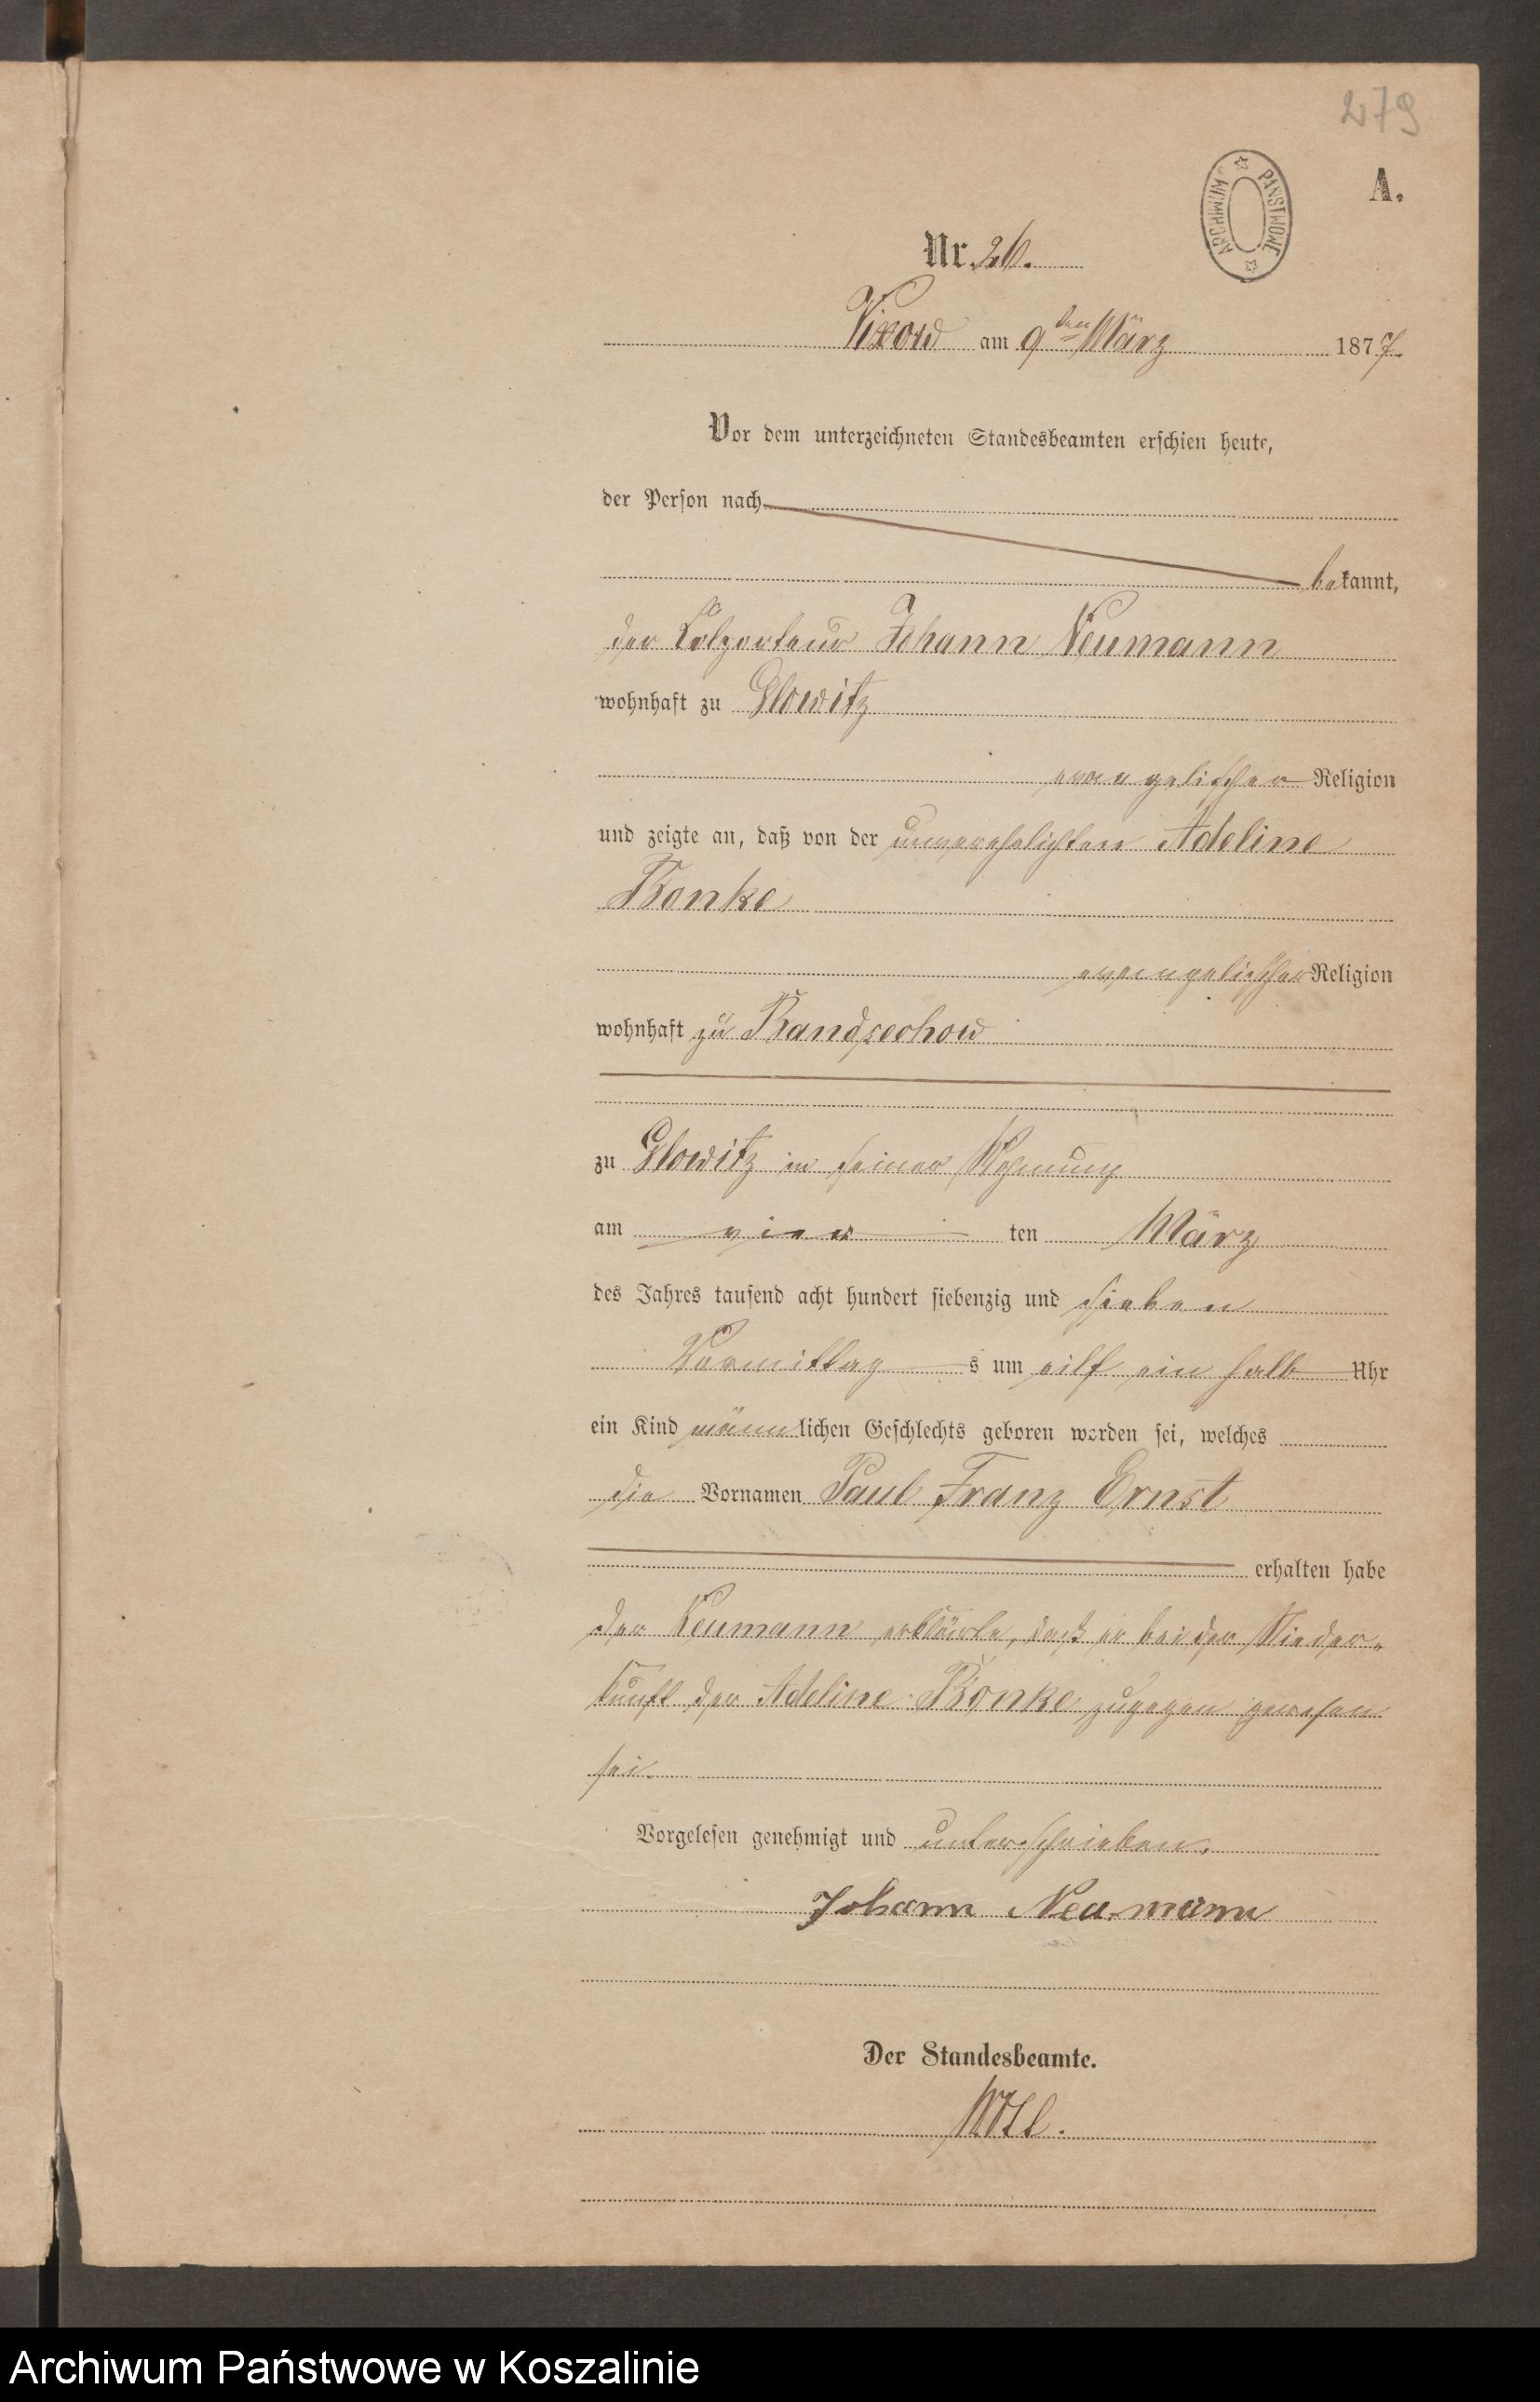 279
A.
ARCHIWUM PAŃSTWOWE
Nr. 26.
Vixow am 9ten März 1877.
Vor dem unterzeichneten Standesbeamten erschien heute,
der Person nach
bekannt,
der Kolporteur Johann Neumann
wohnhaft zu Glowitz
evangelischer Religion
und zeigte an, daß von der unverehelichten Adeline
Bonke
evangelischer Religion
wohnhaft zu Bandsechow
zu Glowitz in seiner Wohnung
am vier ten März
des Jahres tausend acht hundert siebenzig und sieben
Vormittag s um eilf ein halb Uhr
ein Kind männlichen Geschlechts geboren worden sei, welches
die Vornamen Paul Franz Ernst
erhalten habe
der Neumann erklärte, daß er bei der Nieder-
kunft der Adeline Bonke zugegen gewesen
sei.
Vorgelesen genehmigt und unterschrieben.
Johann Neumann
Der Standesbeamte.
Archiwum Państwowe w Koszalinie